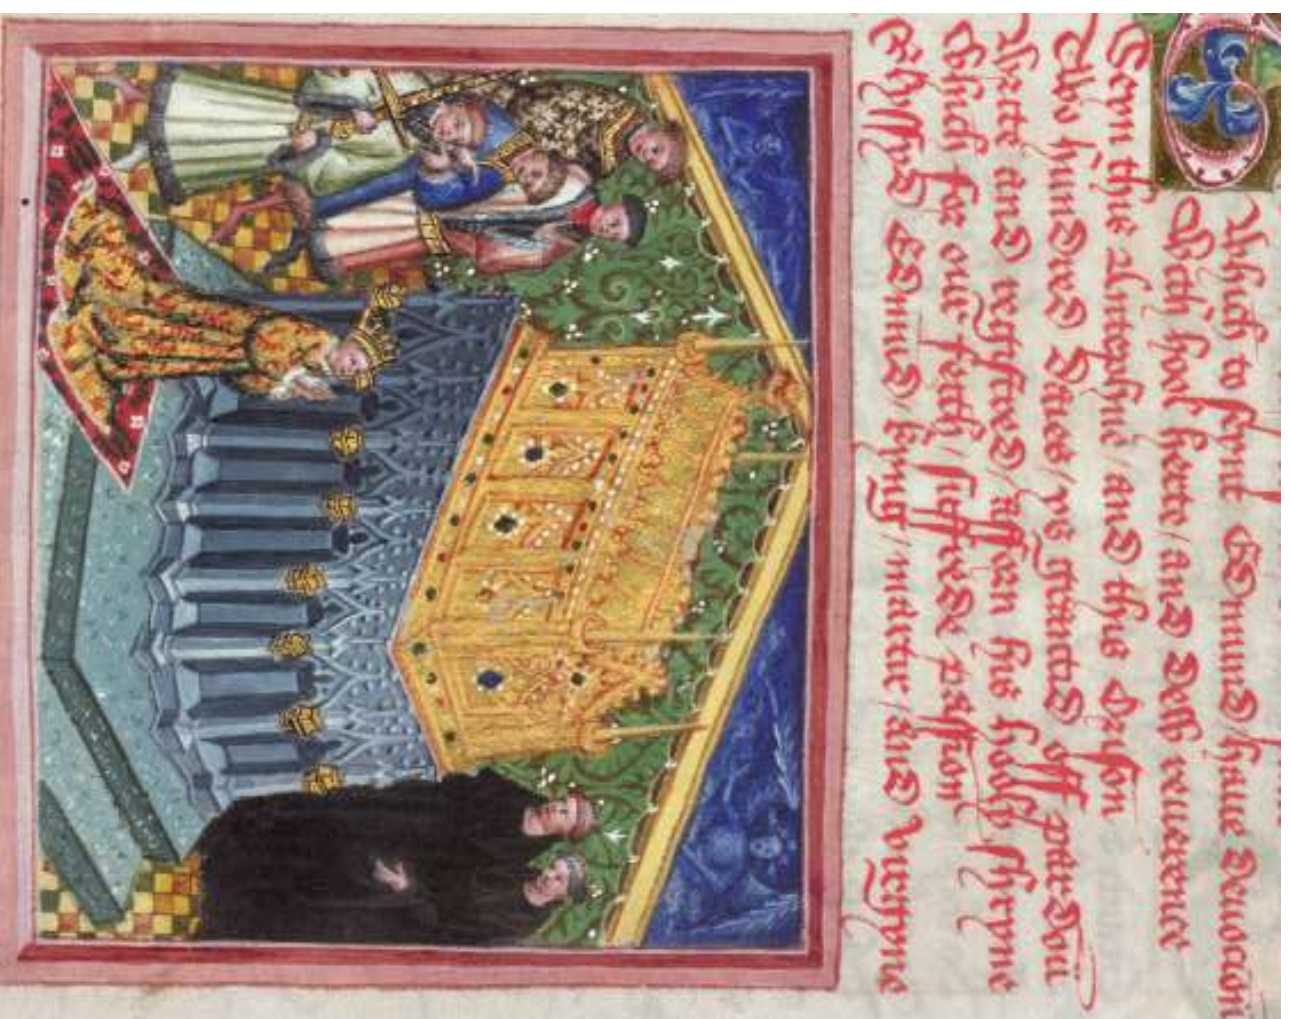 Which to seynt Edmund / haue deuocion
With hool herte / and dew reuerence
Seyn this Antephne / and this orison
Two hundred daies / ys graunted off pardoū
Write and registred / afforn his hooly shryne
Which for our feith / suffrede passion
Blyssyd Edmund / kyng / martir / and virgyne